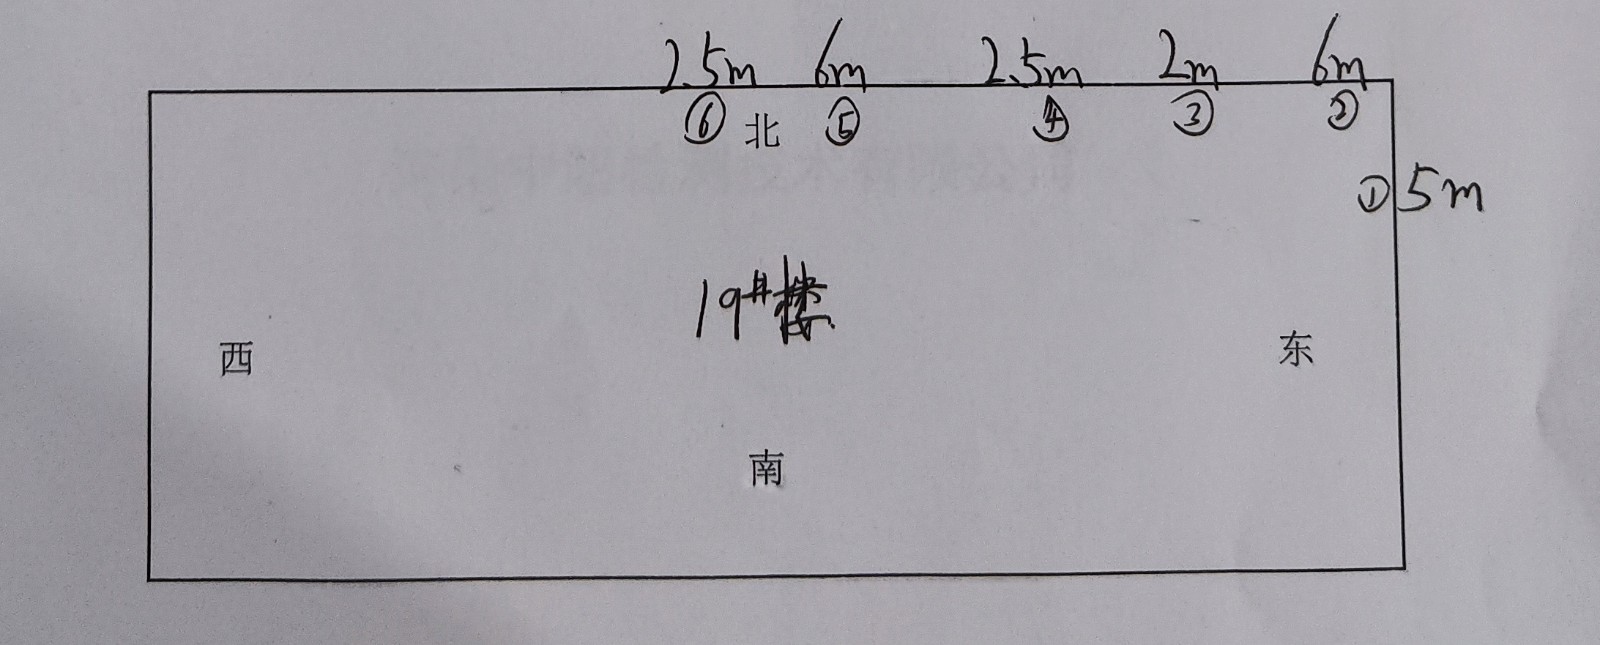 2.5m 6m 2.5m 2m 6m
⑥ 北 ⑤ ④ ③ ②
① 5m
19#楼
西 东
南